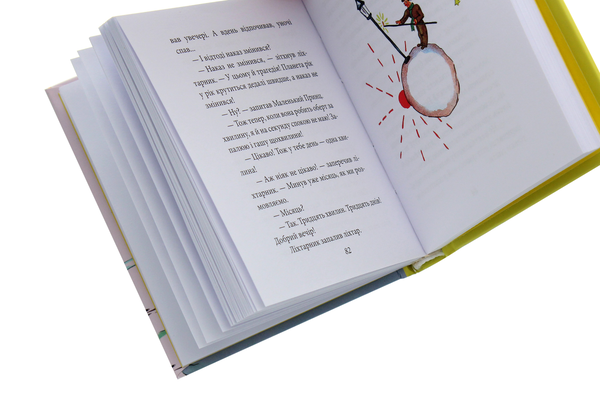 вав увечері. А вдень відпочивав, уночі
спав...
— І відтоді наказ змінився?
— Наказ не змінився, — зітхнув ліх-
тарник. — У цьому й трагедія! Планета рік
у рік крутиться дедалі швидше, а наказ не
змінився!
— Ну? — запитав Маленький Принц.
— Тож тепер, коли вона робить оберт за
хвилину, я й на секунду спокою не маю! За-
палюю і гашу щохвилини!
— Цікаво! Тож у тебе день — одна хви-
лина!
— Аж ніяк не цікаво! — заперечив лі-
хтарник. — Минув уже місяць, як ми роз-
мовляємо.
— Місяць?
— Так. Тридцять хвилин. Тридцять днів!
Добрий вечір!
Ліхтарник запалив ліхтар.
82